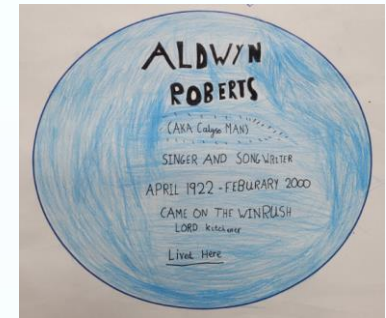 ALDWYN
ROBERTS
(AKA Calypso MAN)
SINGER AND SONGWRITER
APRIL 1922 - FEBURARY 2000
CAME ON THE WINRUSH
LORD Kitchener
Lived Here